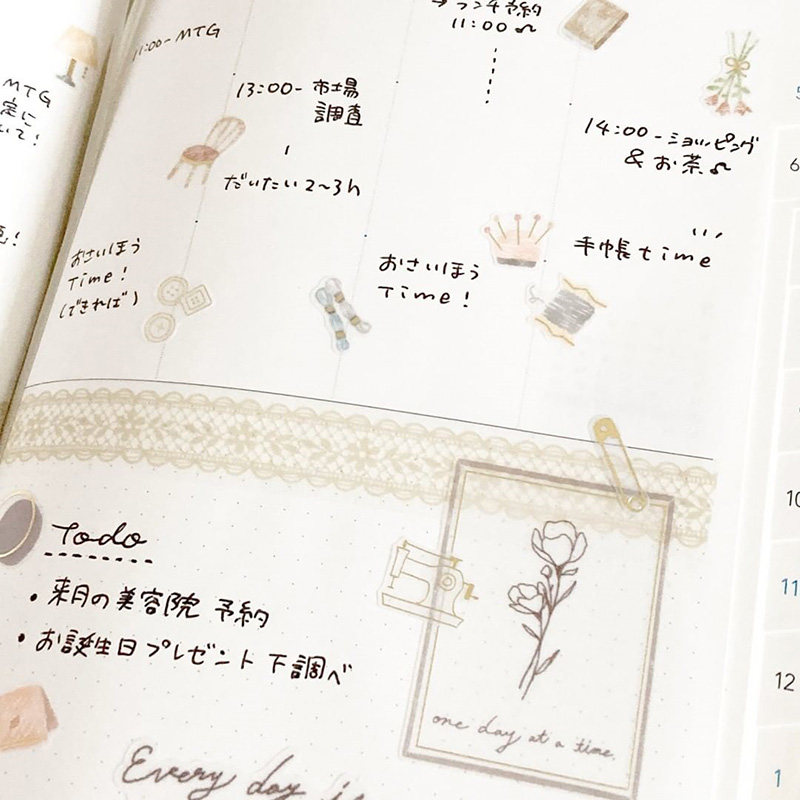 MTG
11:00- MTG
13:00- 市場
調査
だいたい2〜3h
→ランチ予約
11:00♪
14:00-ショッピング
& お茶♪
おさいほう
Time!
(できれば)
おさいほう
Time!
手帳time
Todo
• 来月の美容院 予約
• お誕生日プレゼント下調べ
one day at a time.
Every day is
5
6
10
11
12
1